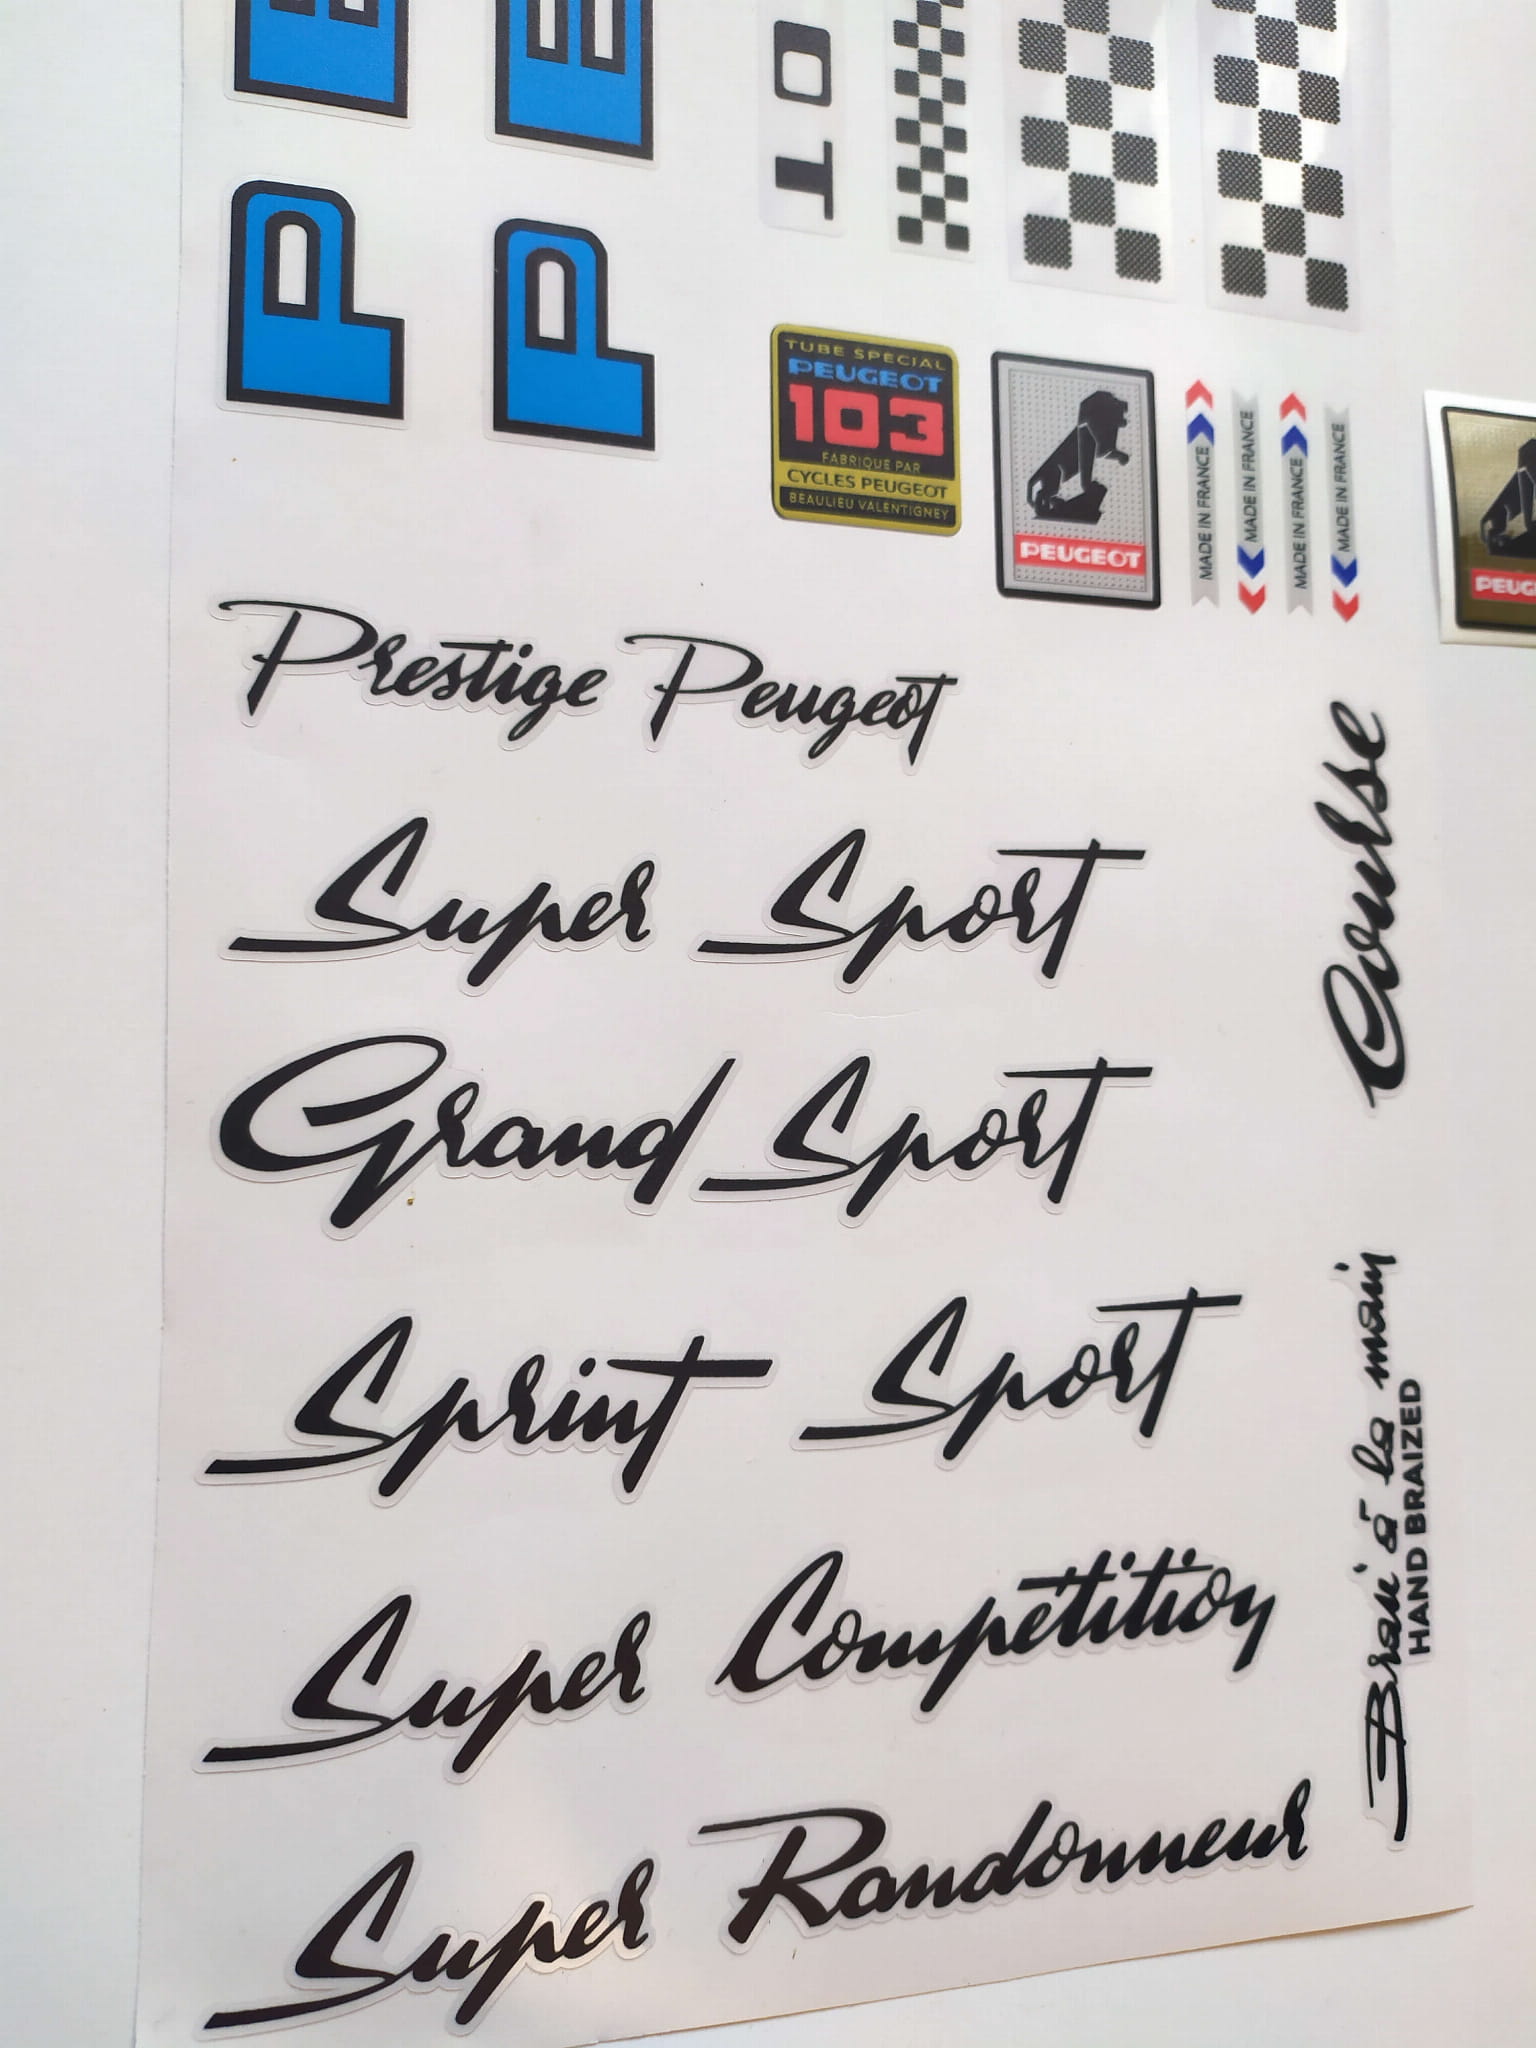 P E
P E
O T
TUBE SPECIAL
PEUGEOT
103
FABRIQUÉ PAR
CYCLES PEUGEOT
BEAULIEU VALENTIGNEY
PEUGEOT
MADE IN FRANCE
MADE IN FRANCE
MADE IN FRANCE
MADE IN FRANCE
PEUG
Prestige Peugeot
Super Sport
Grand Sport
Sprint Sport
Super Compétition
Super Randonneur
Course
Brasé à la main
HAND BRAIZED